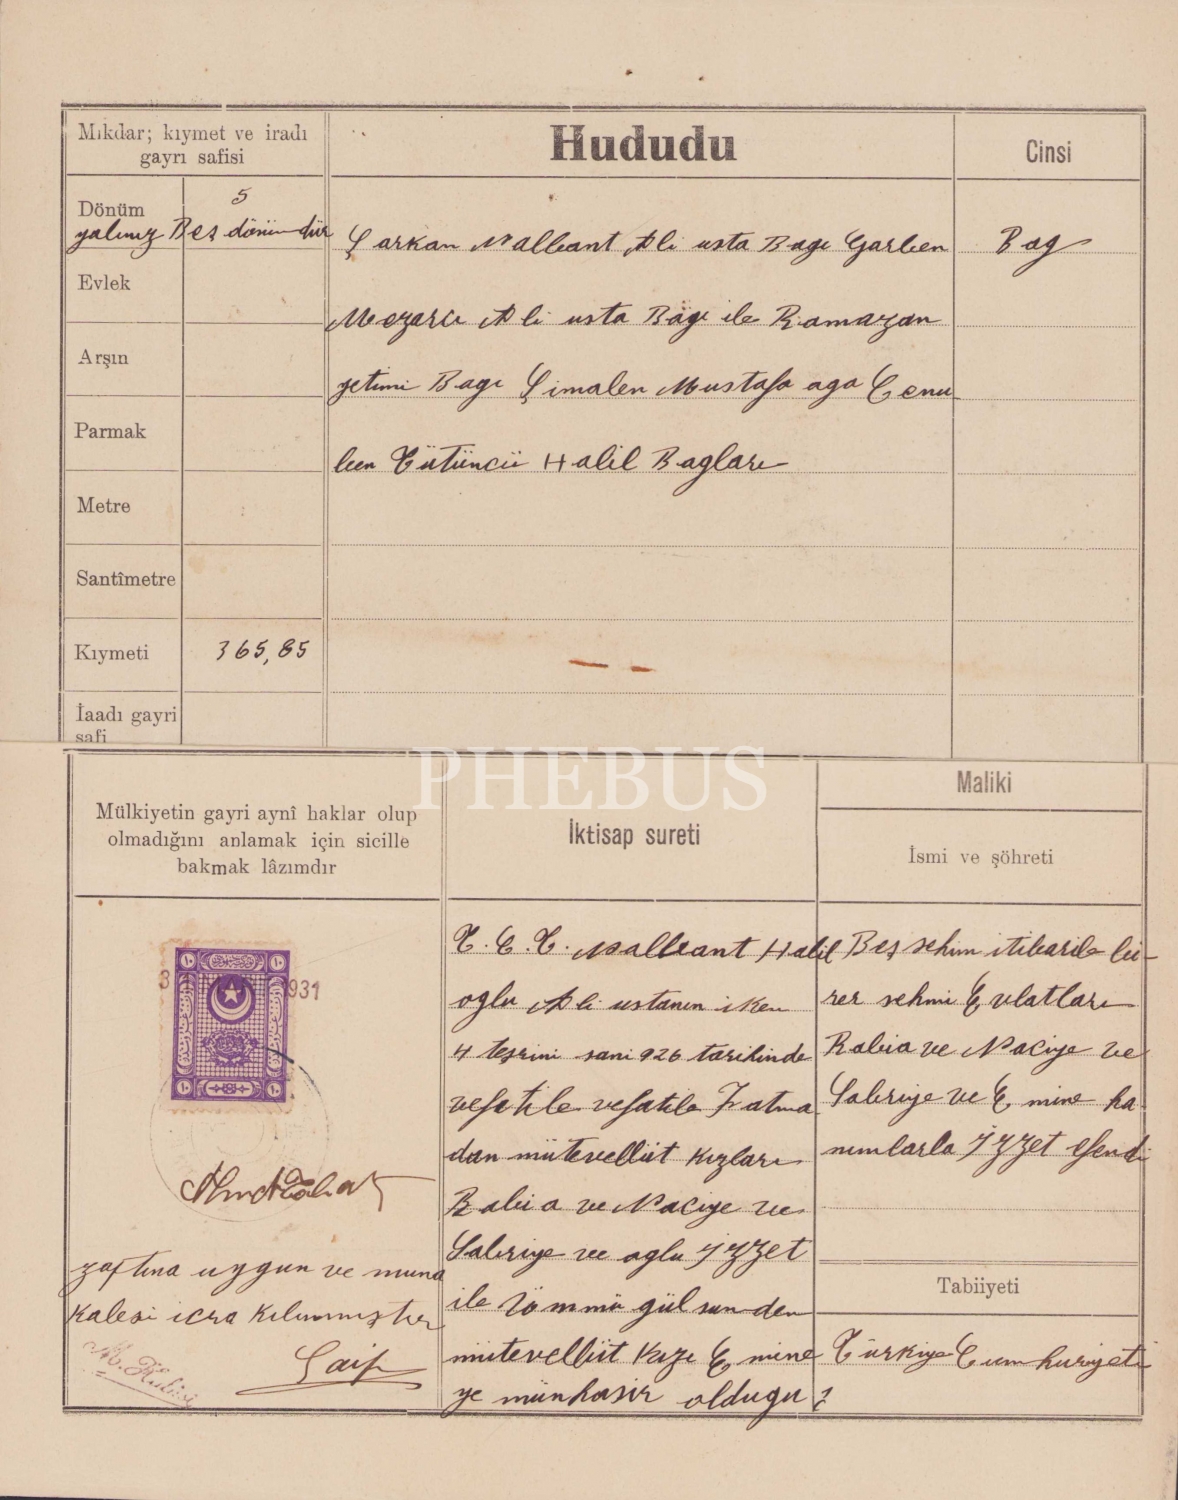 Mıkdar; kıymet ve iradı
gayrı safisi
Hududu
Cinsi
Dönüm
5
yalınız Beş dönümdür
Evlek
Arşın
Parmak
Metre
Santîmetre
Kıymeti
365,85
İaadı gayri
safi
Şarkan Nalbant Ali usta Bagı Garben
Mezarcı Ali usta Bagı ile Ramazan
yetimi Bagı Şimalen Mustafa aga Cenu
ben Tütüncü Halil Bagları
Bag
PHEBUS
Mülkiyetin gayri aynî haklar olup
olmadığını anlamak için sicille
bakmak lâzımdır
İktisap sureti
Maliki
İsmi ve şöhreti
1931
zaftına uygun ve muna
kalesi icra kılınmıştır
T. C. T. Nalbant Halil
oglu Ali ustanın iken
4 teşrini sani 926 tarihinde
vefatile vefatile Fatma
dan mütevellüt kızları
Rabia ve Naciye ve
Sabriye ve oglu İzzet
ile Ümmü gülsunden
mütevellüt kızı Emine
ye münhasir oldugu
Beş sehim itibarile bi-
rer sehmi Evlatları
Rabia ve Naciye ve
Sabriye ve Emine ha
nımlarla İzzet efendi
Tabiiyeti
Türkiye Cumhuriyeti